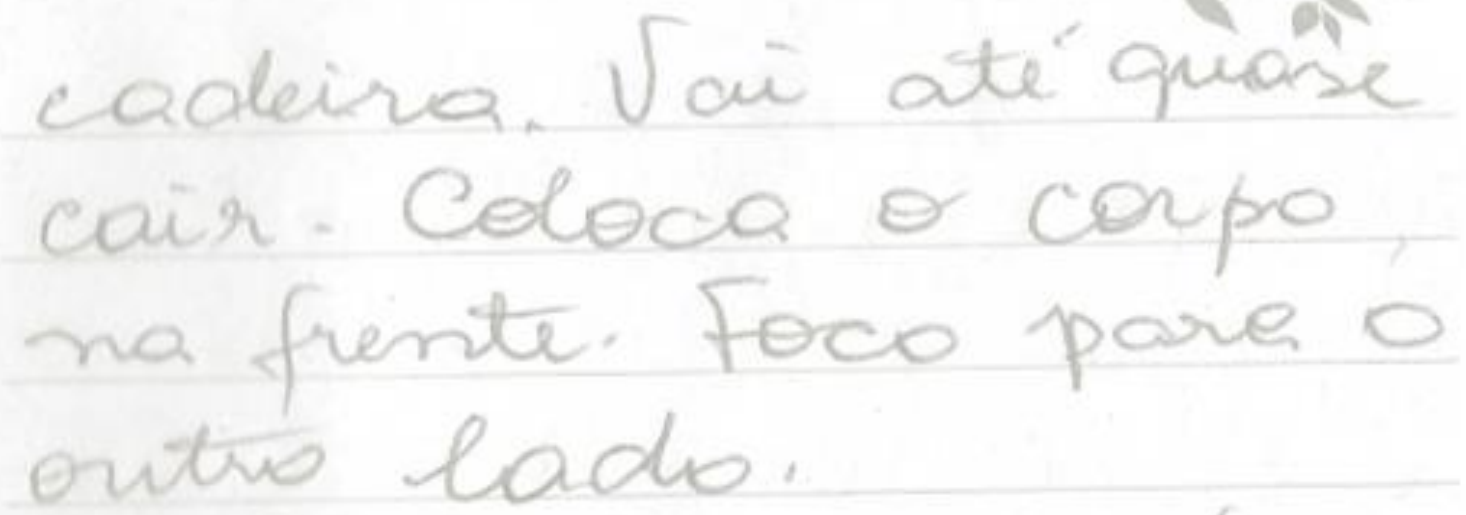 cadeira. Vai até quase
cair. Coloca o corpo
na frente. Foco para o
outro lado.